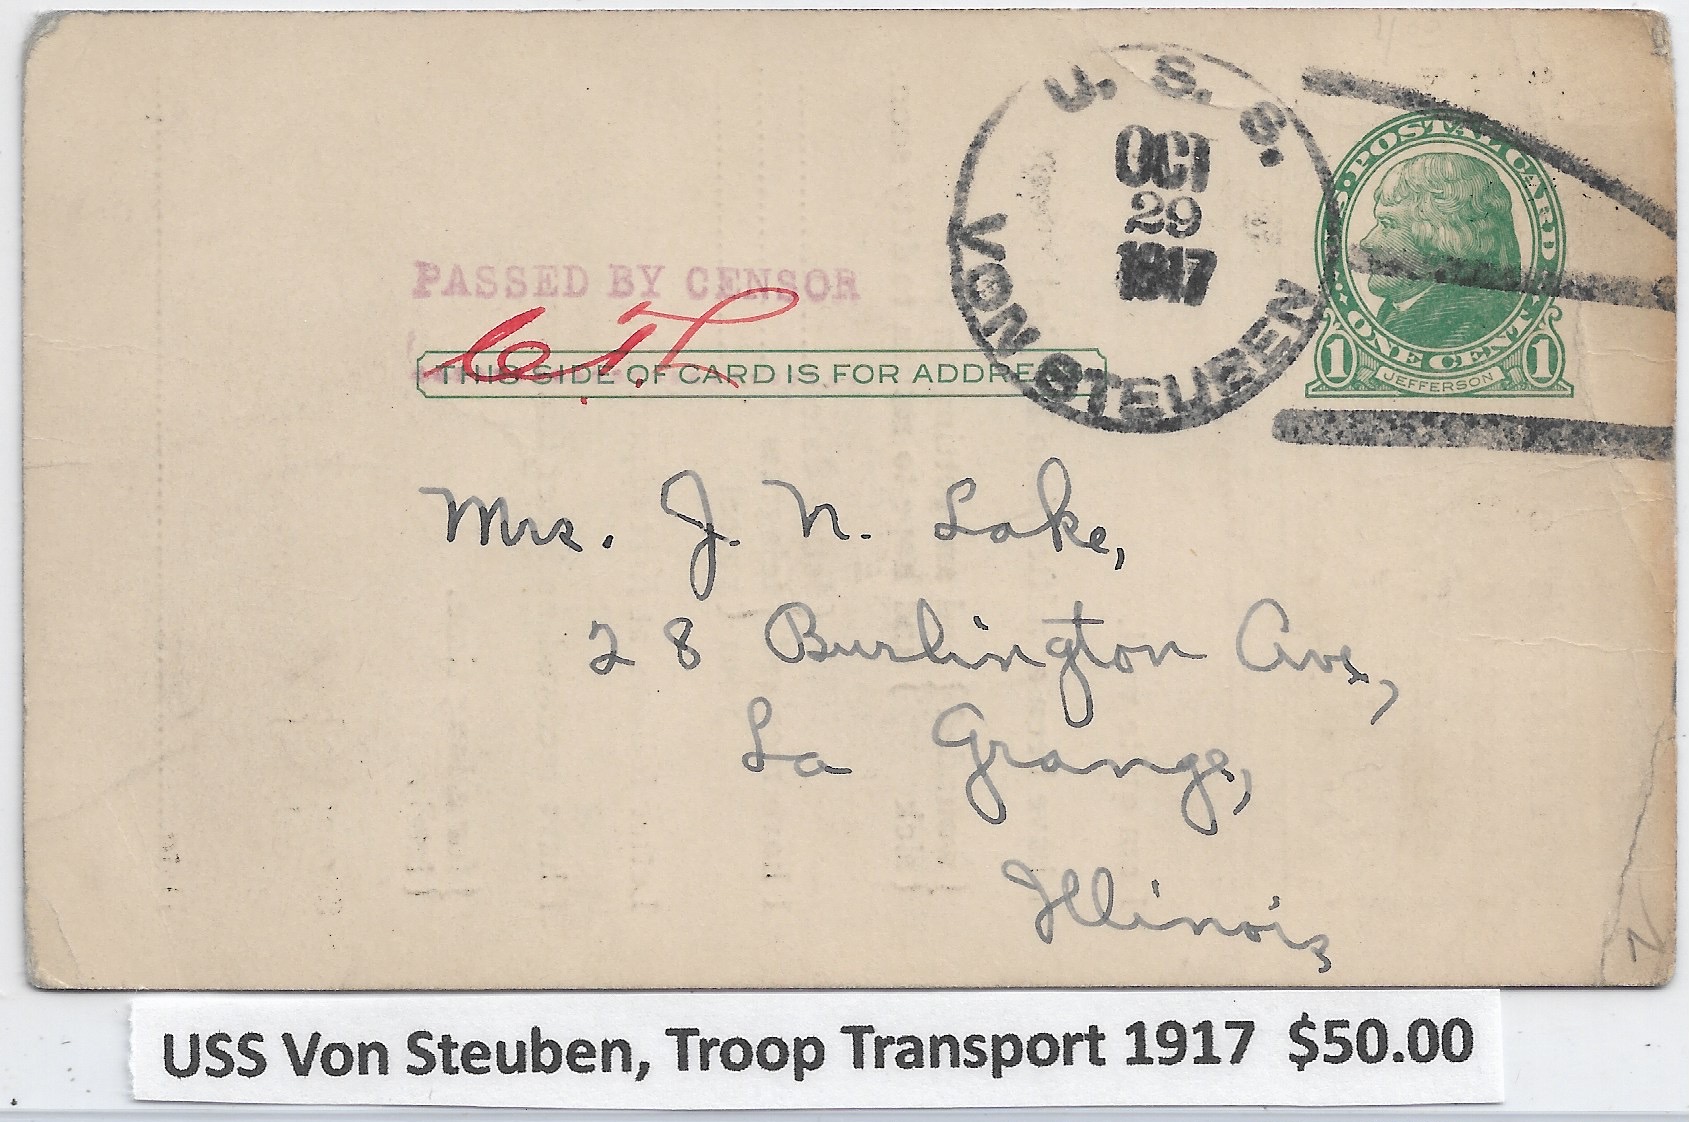 U. S. S.
VON STEUBEN
OCT
29
1917
U.S. POSTAL CARD
ONE CENT
1 JEFFERSON 1
PASSED BY CENSOR
THIS SIDE OF CARD IS FOR ADDRE
Mrs. J. N. Lake,
28 Burlington Ave,
La Grange,
Illinois
N
USS Von Steuben, Troop Transport 1917 $50.00